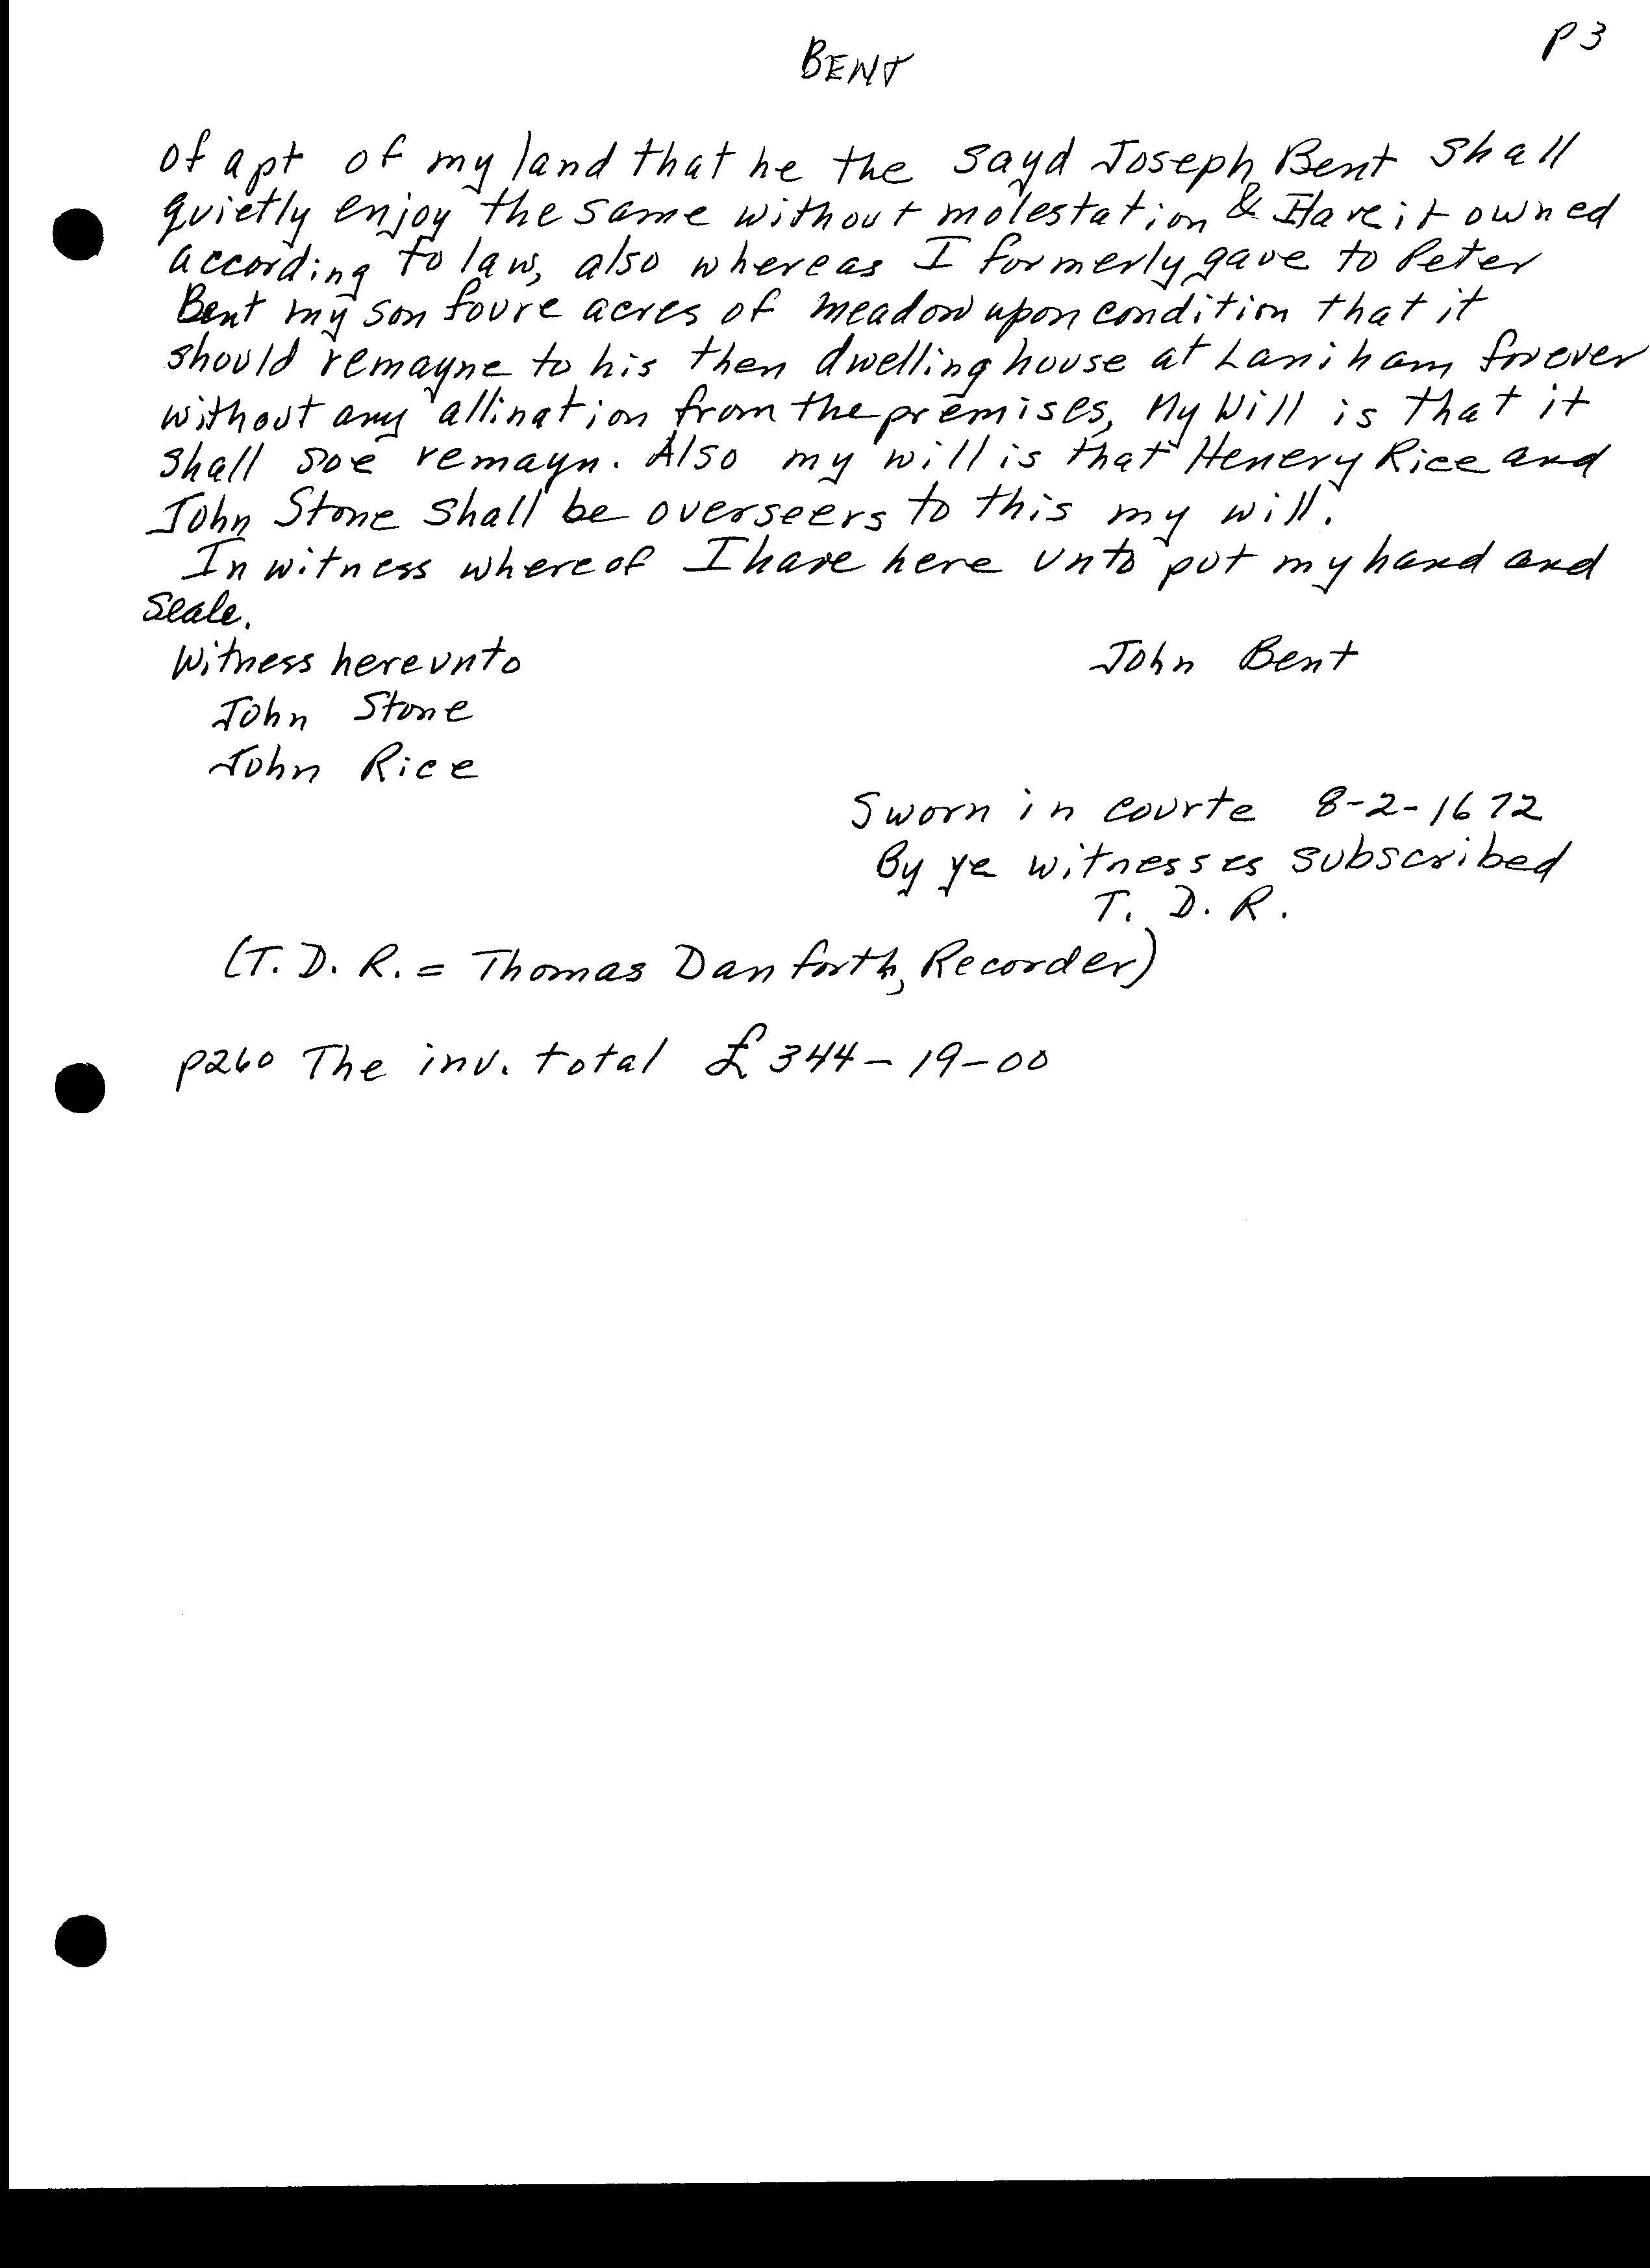 P 3
BENT
of apt of my land that he the sayd Joseph Bent shall
quietly enjoy the same without molestation & Have it owned
according to law, also whereas I formerly gave to Peter
Bent my son foure acres of meadow upon condition that it
should remayne to his then dwelling house at Laniham forever
without any allination from the premises, My Will is that it
shall soe remayn. Also my will is that Henery Rice and
John Stone shall be overseers to this my will.
In witness whereof I have here vnto put my hand and
Seale.
Witness herevnto John Bent
John Stone
John Rice
Sworn in courte 8-2-1672
By ye witnesses subscribed
T. D. R.
(T. D. R. = Thomas Danforth, Recorder)
p260 The inv. total £ 344-19-00